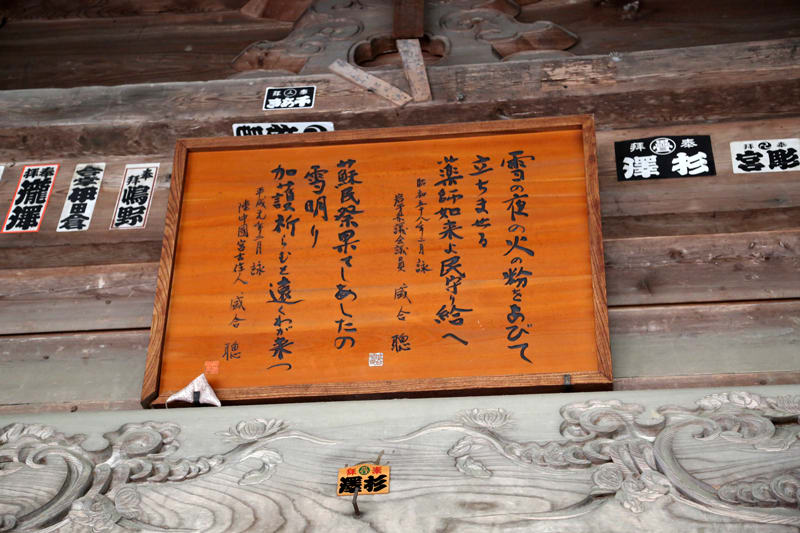 雪の夜の火の粉をあびて
立ちませる
薬師如来よ民守り給へ
昭和五十八年二月 詠
岩手県議会議員 盛合 聰
蘇民祭果てしあしたの
雪明り
加護祈らむと遠くわが来つ
平成元年二月 詠
陸中國宮古住人 盛合 聰
奉拝
杉澤
奉拝
彫宮
奉拝
奉拝
鳴野
伊田倉
奉拝
瀧澤
奉拝
杉澤